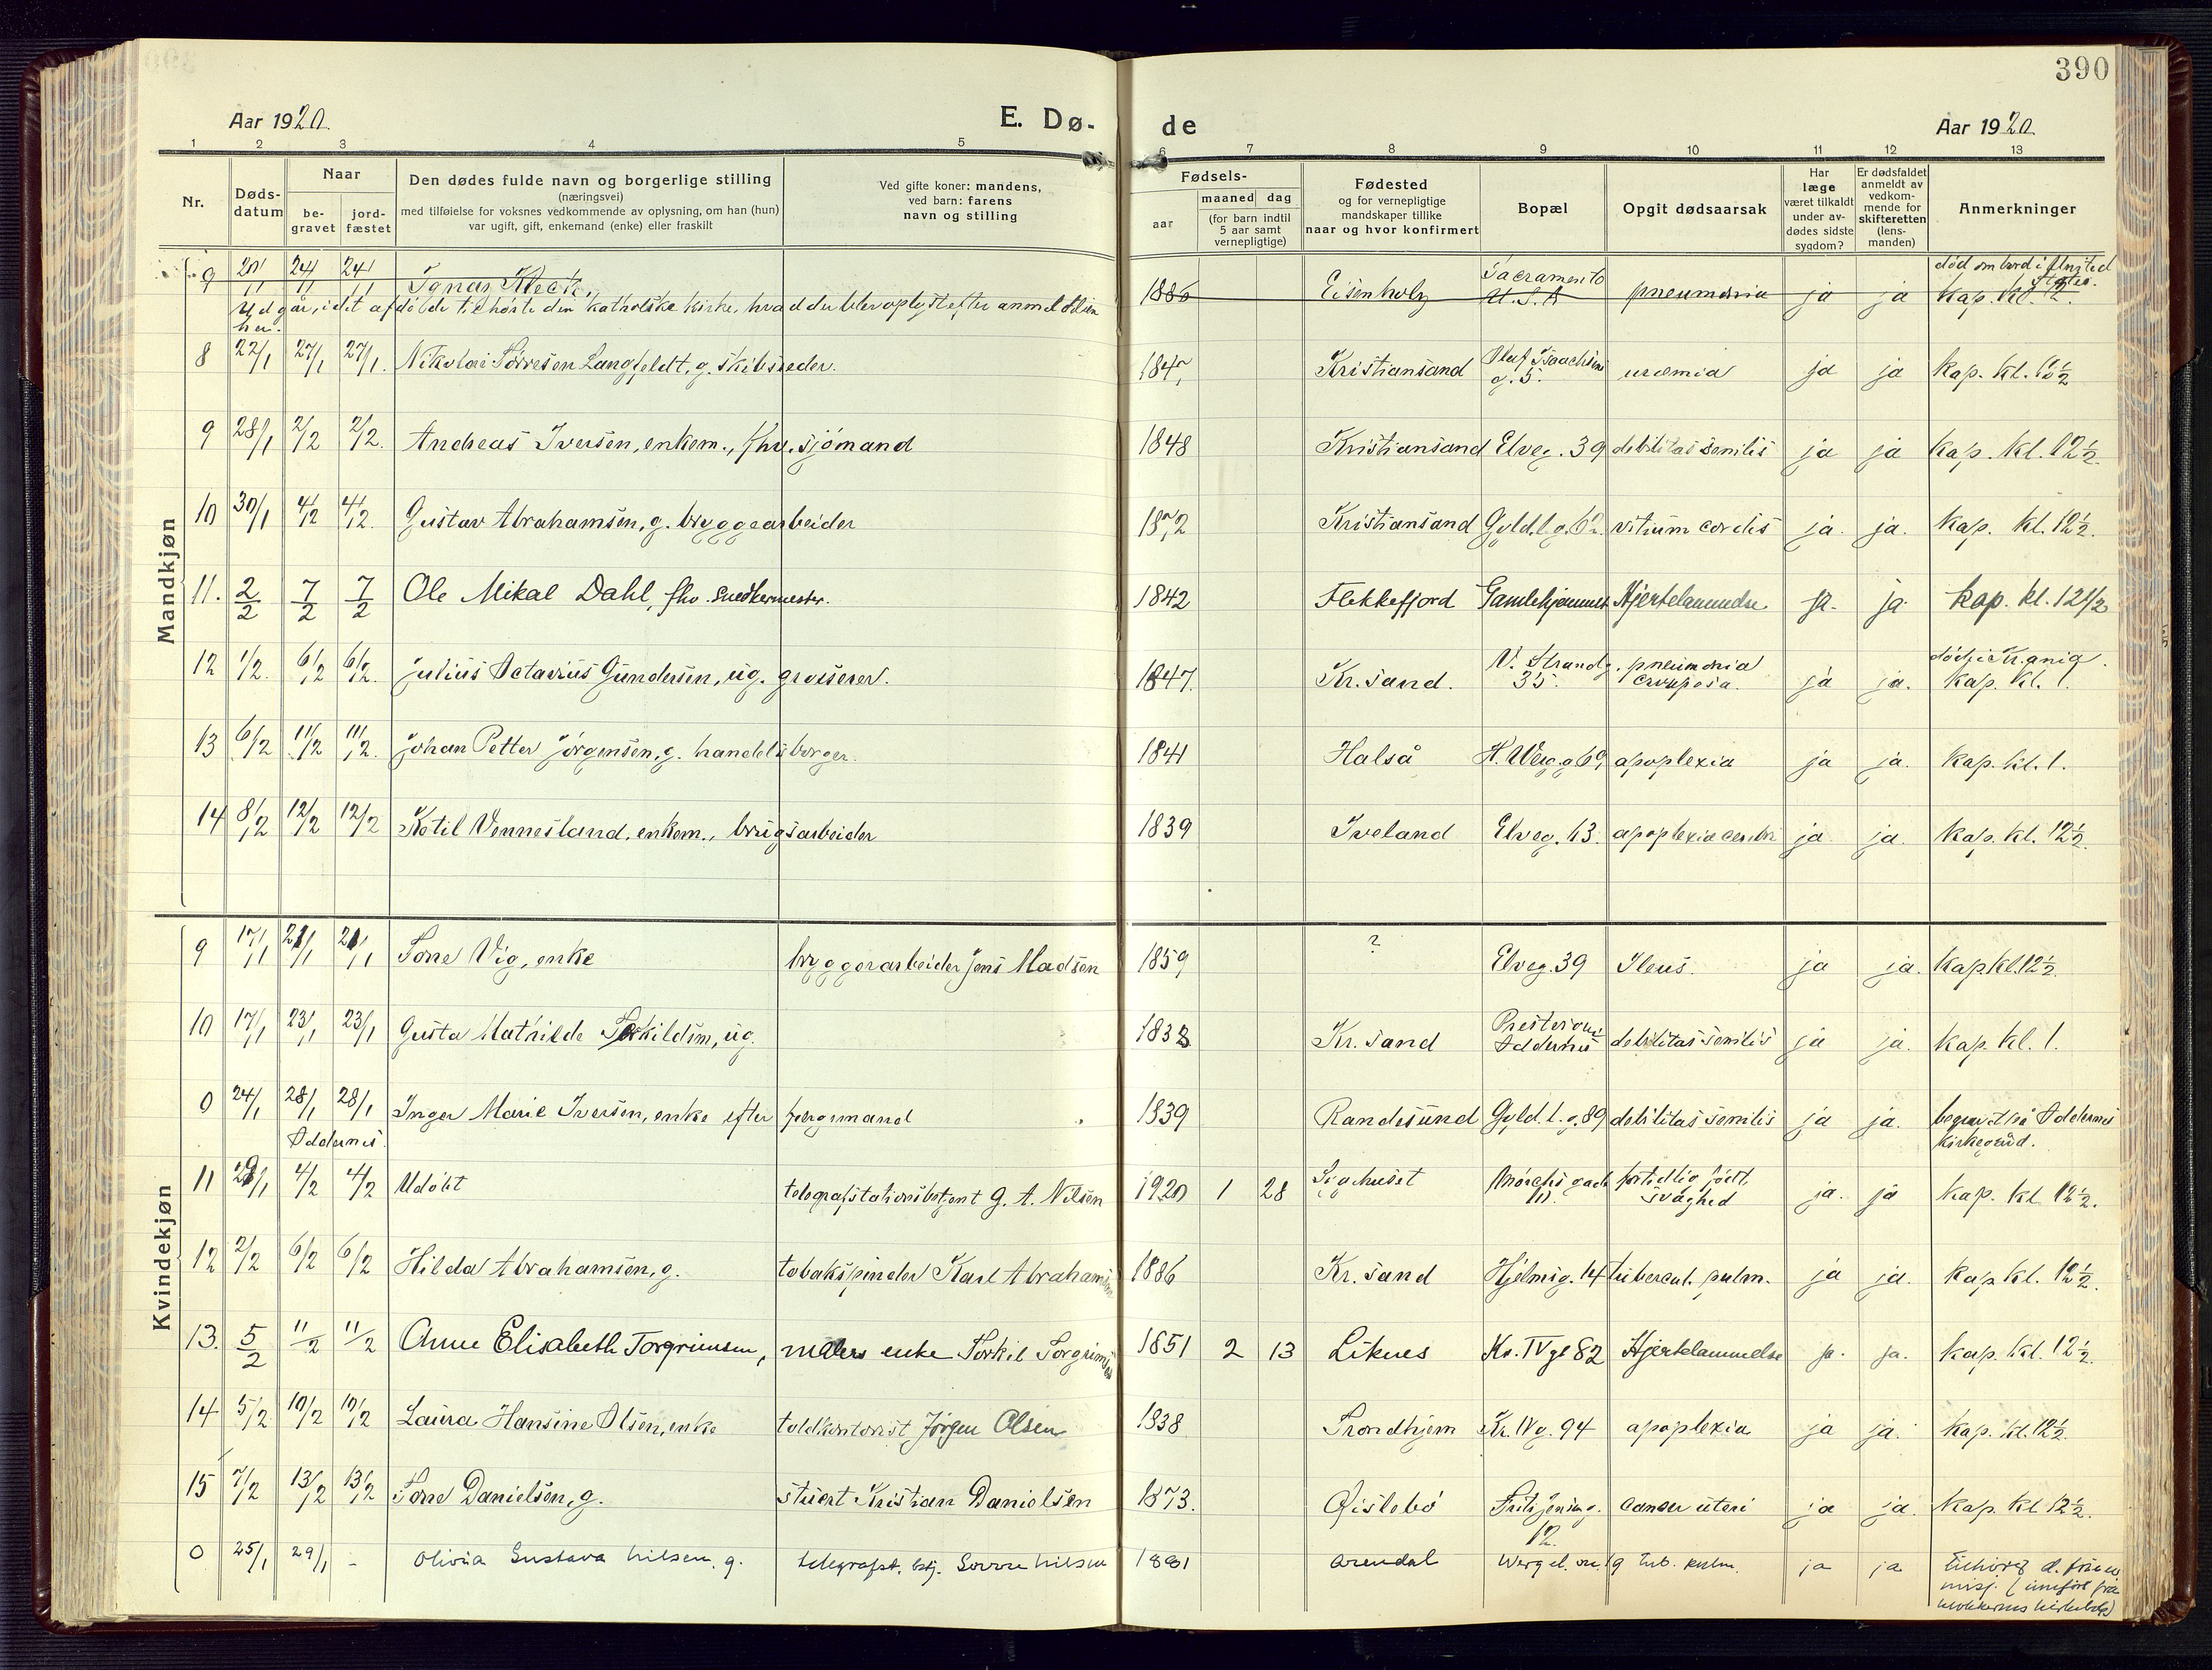 390
Aar 1920.
E. Dø-
de
Aar 1920.
1 2 3 4 5 6 7 8 9 10 11 12 13
Nr.
Døds-
datum
Naar
be-
gravet
jord-
fæstet
Den dødes fulde navn og borgerlige stilling
(næringsvei)
med tilføielse for voksnes vedkommende av oplysning, om han (hun)
var ugift, gift, enkemand (enke) eller fraskilt
Ved gifte koner: mandens,
ved barn: farens
navn og stilling
Fødsels-
aar
maaned dag
(for barn indtil
5 aar samt
vernepligtige)
Fødested
og for vernepligtige
mandskaper tillike
naar og hvor konfirmert
Bopæl
Opgit dødsaarsak
Har
læge
været tilkaldt
under av-
dødes sidste
sygdom?
Er dødsfaldet
anmeldt av
vedkom-
mende for
skifteretten
(lens-
manden)
Anmerkninger
Mandkjøn
9 20/1 24/1 24/1 Ignas Kleck, 1886 Eisenholz Sacramento U.S.A pneumonia ja ja død ombord i United States. Kap. kl. 12.
Udgår, idet afdøde tilhørte den katholske kirke, hvad der blev oplyst efter anmeldelsen
her.
8 22/1 27/1 27/1. Nikolai Tørresen Langfeldt, g. skibsreder. 1845 Kristiansand Oluf Isaachsens g. 5. uræmia ja ja kap. kl. 10½
9 28/1 2/2 2/2. Andreas Iversen, enkem., fhv. sjömand 1848 Kristiansand Elveg. 39 debilitas senilis ja ja kap. kl. 12½.
10 30/1 4/2 4/2. Gustav Abrahamsen, g. bryggearbeider 1872 Kristiansand Gyld.l.g. 62. vitium cordis ja. ja. kap. kl. 12½.
11. 2/2 7/2 7/2 Ole Mikal Dahl, fhv. Snedkermester. 1842 Flekkefjord Gamlehjemmet Hjertelammelse ja. ja. kap. kl. 12½
12 1/2. 6/2 6/2. Julius Octavius Gundersen, ug. grosserer. 1847. Kr.sand. V. Strandg. 35. pneumonia crupposa. ja ja. død i Kr.ania. kap. kl. 1.
13 6/2 11/2 11/2. Johan Petter Jørgensen, g. handelsborger. 1841 Halså H. Werg.g 69, apoplexia ja ja. kap. kl. 1.
14 8/2 12/2 12/2 Ketil Vennesland, enkem., brugsarbeider 1839 Iveland Elveg. 63. apoplexia cerebri ja ja. kap. kl. 12½.
Kvindekjøn
9 17/1 21/1 21/1 Tone Vig, enke bryggearbeider Jens Madsen 1859 ? Elveg. 39 Ileus. ja ja. kap kl. 12½.
10 17/1 23/1 23/1 Gusta Mathilde Torkildsen, ug. 1838 Kr.sand Prestvigen Oddernes debilitas senilis ja ja. kap. kl. 1.
0 24/1 28/1 28/1 Inger Marie Iversen, enke efter færgemand 1839 Randesund Gyld. l. g. 89 debilitas senilis ja ja. begravet på Oddernes
Oddernes. kirkegård.
11 29/1 4/2 4/2 Udöbt telegrafstationsbetjent G. A. Nilsen 1920 1 28 Sygehuset Mörchs gade 10. fortidlig født, svaghed ja. ja kap. kl. 12½.
12 2/2 6/2 6/2 Hilda Abrahamsen, g. tobakspinder Karl Abrahamsen 1886 Kr.sand Hjelmsg. 14 tubercul. pulm. ja ja. kap kl. 12½.
13. 5/2 11/2 11/2 Anne Elisabeth Torgrimsen, malers enke Torkil Torgrimsen 1851 2 13 Liknes Kr. IV gt 82 Hjertelammelse ja. ja. kap. kl. 12½.
14 5/2 10/2 10/2 Laura Hansine Olsen, enke toldkontorist Jörgen Olsen 1838 Trondhjem Kr. IV g. 94 apoplexia ja ja. kap. kl. 12½.
15 7/2 13/2 13/2 Tone Danielsen, g. stuert Kristian Danielsen 1873. Øislebö 12. cancer uteri ja ja. kap. kl 12½.
0 25/1 29/1 - Olivia Gustava Nilsen, g. telegrafst. btj. Nilsen 1881 Arendal Wergel. 19 tub. pulm. ja ja Tilhörer d. frie
misj. (innfört fra
klokkerens kirkebok)